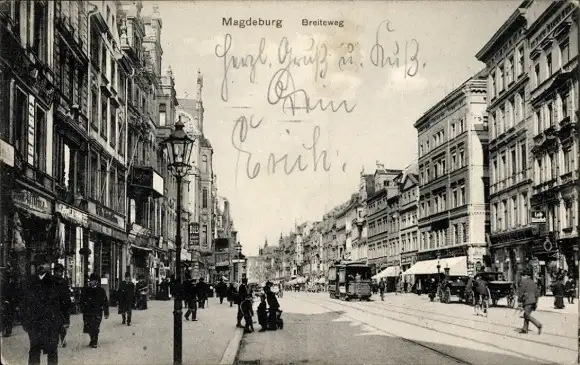 Magdeburg Breiteweg
Herzl. Gruß u. Kuß.
Dein
Erich.